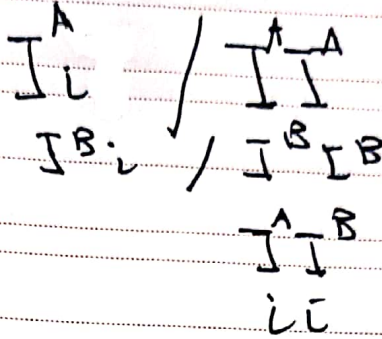 Iᴬi / IᴬIᴬ
Iᴮi / IᴮIᴮ
IᴬIᴮ
ii